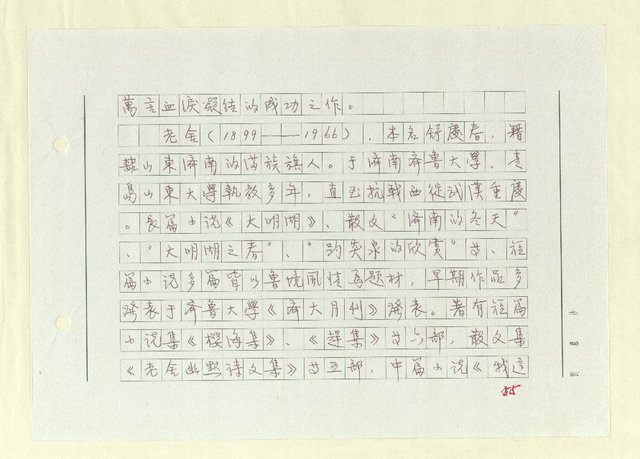 萬言血淚凝结的成功之作。
老舍(1899——1966),本名舒慶春,籍
山東濟南的满族旗人。于濟南齊魯大學、青
島山東大學執教多年,直至抗戰西從武漢重慶
。長篇小说《大明湖》、散文“濟南的冬天”
、“大明湖之春”、“趵突泉的欣赏”等、短
篇小说多篇皆以魯境風情為題材,早期作品多
發表于齊魯大學《齊大月刊》發表。著有短篇
小说集《櫻海集》、《趕集》等六部,散文集
《老舍幽默诗文集》等五部,中篇小说《我這
55